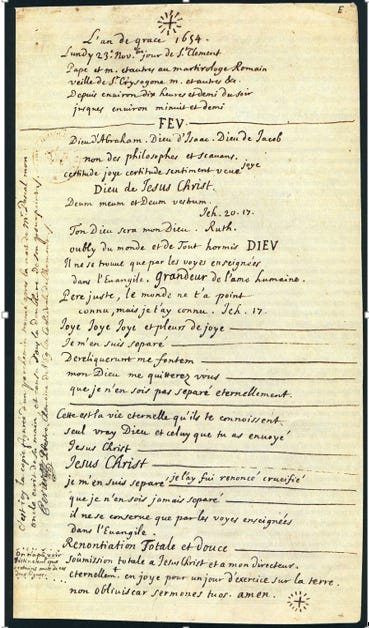 E
L'an de grace 1654.
Lundy 23e. Nov.bre jour de St Clement
Pape et m. et autres au martirologe Romain
veille de St Crysogone m. et autres &c.
Depuis environ dix heures et demi du soir
jusques environ minuit et demi
FEV.
Dieu d'Abraham. Dieu d'Isaac. Dieu de Jacob
non des philosophes et scavans.
certitude joye certitude sentiment veue joye
Dieu de Jesus Christ.
Deum meum et Deum vestrum.
Jeh. 20. 17.
Ton Dieu sera mon Dieu. Ruth.
oubly du monde et de Tout hormis DIEV
Il ne se trouve que par les voyes enseignées
dans l'Euangile. Grandeur de l'ame humaine.
Pere juste, le monde ne t'a point
connu, mais je t'ay connu. Jeh. 17.
Joye Joye Joye et pleurs de joye
Je m'en suis separé
Dereliquerunt me fontem
mon Dieu me quitterez vous
que je n'en sois pas separé eternellement.
Cette est la vie eternelle qu'ils te connoissent
seul vray Dieu et celuy que tu as envoyé
Jesus Christ
Jesus Christ
je m'en suis separé je l'ay fui renoncé crucifié
que je n'en sois jamais separé
il ne se conserue que par les voyes enseignées
dans l'Euangile.
Renontiation Totale et douce
soûmission totale a Jesus Christ et a mon directeur.
eternellem.t en joye pour un jour d'exercice sur la terre.
non obliviscar sermones tuos. amen.
C'est icy la copie figurée d'un parchemin trouvé apres la mort de Mr Pascal mon
oncle écrit de sa main, et cousu dans la doublure de son pourpoint.